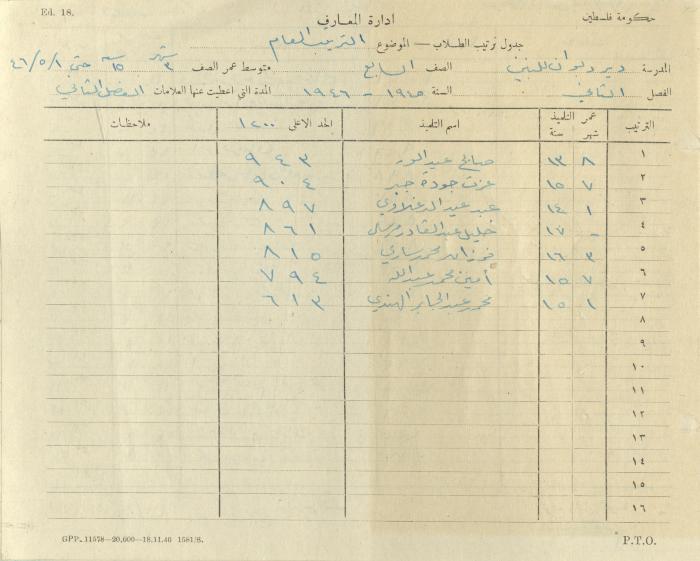 Ed. 18.
حكومة فلسطين
ادارة المعارف
جدول ترتيب الطلاب — الموضوع الترتيب العام
المدرسة دير ديوان للبنين الصف السابع متوسط عمر الصف ٣ شهر ١٥ سنة حتى ٤٦/٥/١
الفصل الثاني السنة ١٩٤٥ - ١٩٤٦ المدة التي اعطيت عنها العلامات الفصل الثاني
الترتيب عمر التلميذ شهر سنة اسم التلميذ الحد الاعلى ١٢٠٠ ملاحظات
١ ٨ ١٣ صالح عبد ٩٤٣
٢ ٧ ١٥ عزت جودة جبر ٩٠٤
٣ ١ ١٤ عبد عبد ٨٩٧
٤ - ١٧ خليل عبد القادر مرسي ٨٦١
٥ ٣ ١٦ فوزات محمد ساري ٨١٥
٦ ٧ ١٥ أمين محمد عبدالله ٧٩٤
٧ ١ ١٥ محمد عبد الجابر الهندي ٦١٣
٨
٩
١٠
١١
١٢
١٣
١٤
١٥
١٦
GPP. 11578—20,000—18.11.40 1581/S.
P.T.O.